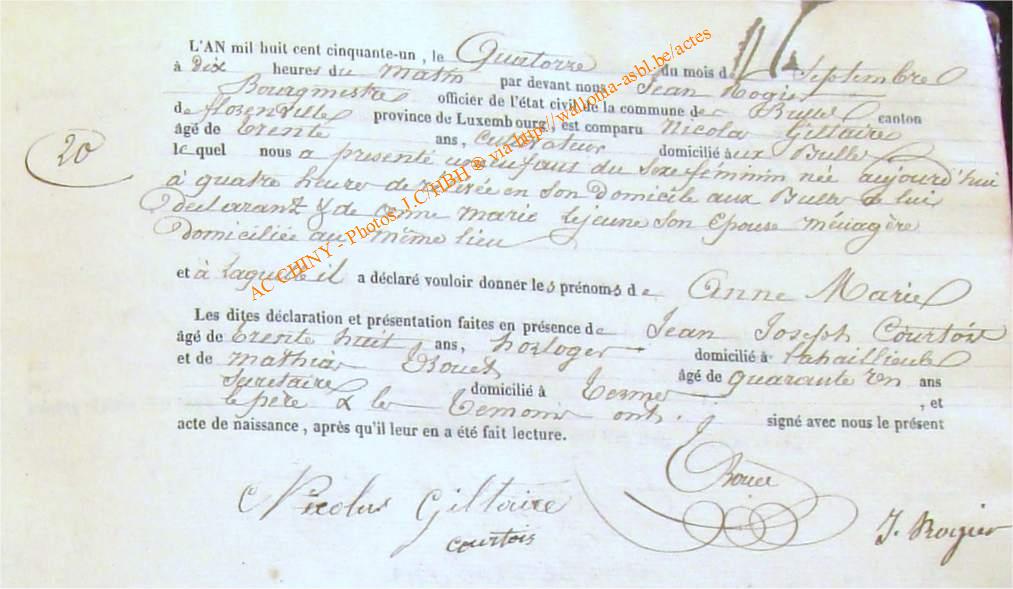 L'AN mil huit cent cinquante-un, le Quatorze du mois de Septembre
à dix heures du matin par devant nous Jean Rogier
Bourgmestre officier de l'état civil de la commune de Bulles canton
de florenville province de Luxembourg, est comparu Nicola Giltaire
âgé de trente ans, cultivateur domicilié aux Bulles
le quel nous a presenté un enfans du sexe feminin née aujourd'hui
à quatre heures de en son domicile aux Bulles de lui
declarrant & de anne marie Lejeune son épouse ménagère
domiciliée au même lieu
et à laquelle il a déclaré vouloir donner les prénoms de Anne Marie
Les dites déclaration et présentation faites en présence de Jean Joseph Courtois
âgé de trente huit ans, horloger domicilié à
et de mathias âgé de quarante en ans
Secretaire domicilié à Termes, et
le père & les temoins ont signé avec nous le présent
acte de naissance, après qu'il leur en a été fait lecture.
20
Nicolas Giltaire
courtois
J. Rogier
AC CHINY - Photos J.C/HBH @ via http://wallonia-asbl.be/actes